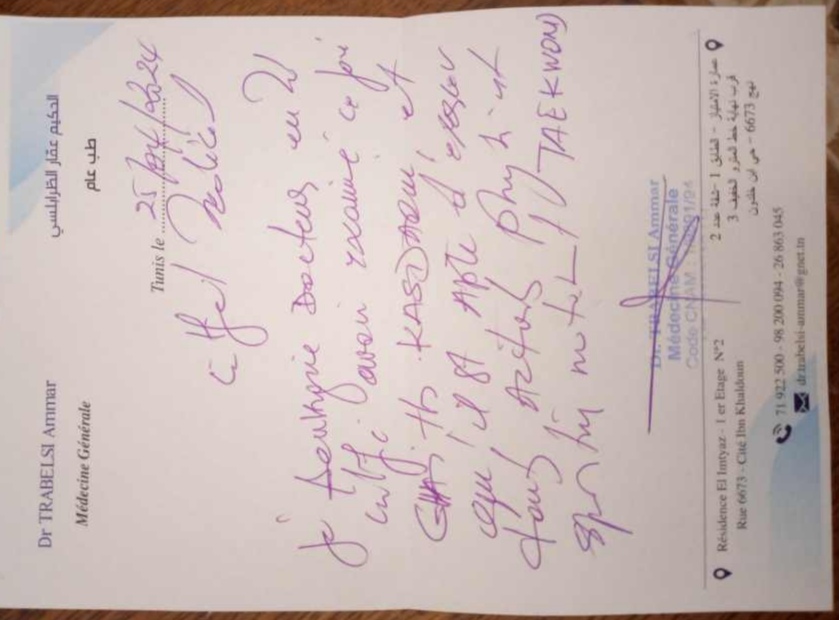 Dr TRABELSI Ammar
Médecine Générale
الحكيم عمّار الطرابلسي
طب عام
Tunis le 25/04/2024
Certificat Médical
Je soussigné Docteur en
avoir examiné ce jour
KASDARLI et
qu'il est Apte d'exercer
tous Activités Physique
sportive notet TAEKWOND
Dr. TRABELSI Ammar
Médecine Générale
Code CNAM
Résidence El Imtyaz - 1 er Etage N°2
Rue 6673 - Cité Ibn Khaldoun
عمارة الامتياز - الطابق 1 - شقة عدد 2
قرب نهاية خط المترو الخفيف 3
نهج 6673 - حي ابن خلدون
71 922 500 - 98 200 094 - 26 863 045
dr.trabelsi-ammar@gnet.tn